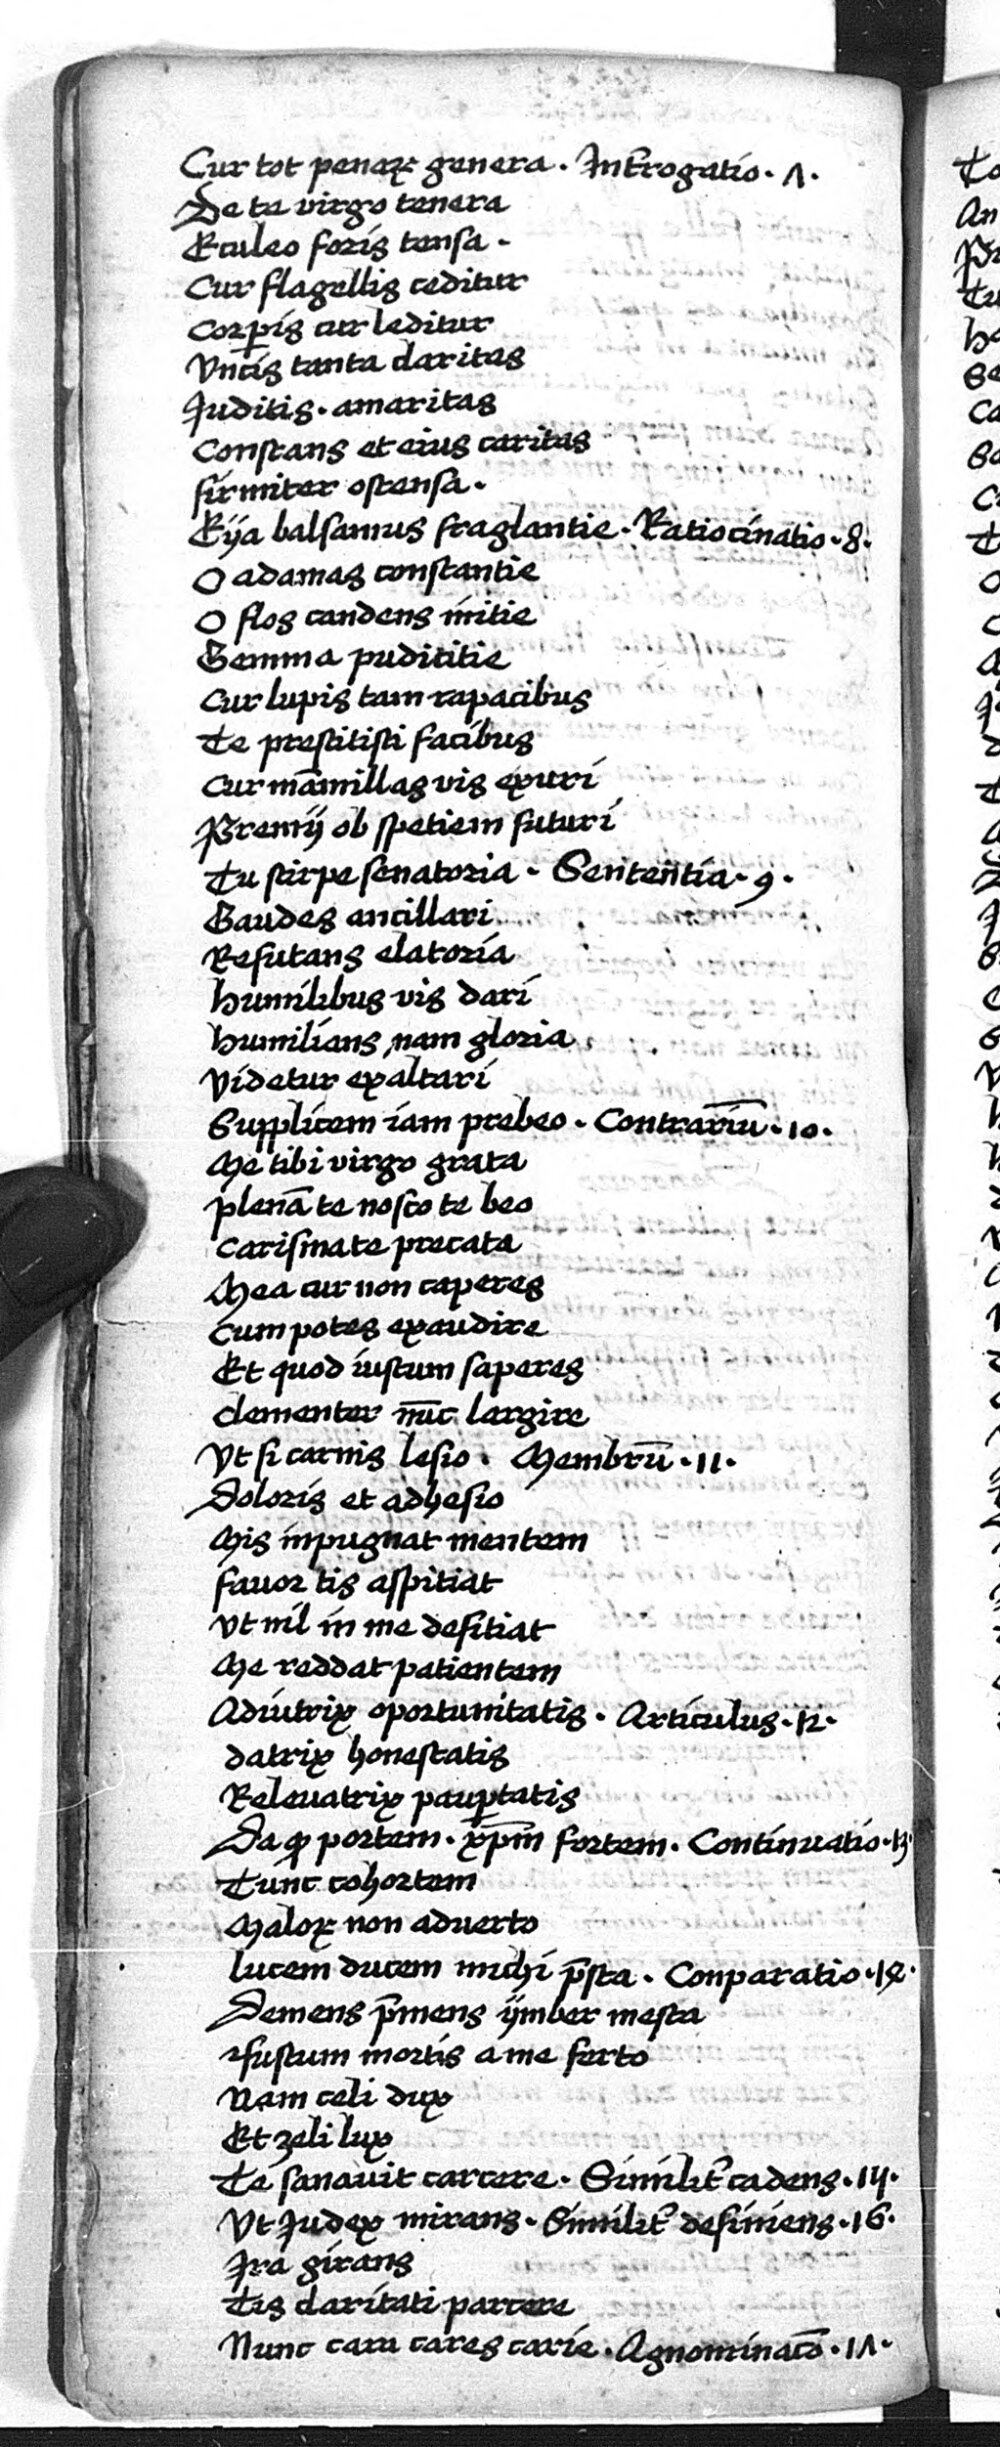 Cur tot penaꝝ genera · Int̄rogatio · 7 ·
De te virgo tenera
Eculeo foris tensa ·
Cur flagellis ceditur
Corꝑis cur leditur
Vncis tanta claritas
Juditis · amaritas
Constans et eius caritas
firmiter ostensa ·
Eija balsamus fraglantie · Ratiocinatio · 8 ·
O adamas constantie
O flos candens initie
Gemma pudititie
Cur lupis tam rapacibus
Te prestitisti facibus
Cur māmillas vis exuri
Premij ob spetiem futuri
Tu stirpe senatoria · Sententia · 9 ·
Gaudes ancillari
Refutans elatoria
humilibus vis dari
humilians nam gloria
Videtur exaltari
Supplicem iam prebeo · Contrariū · 10 ·
Me tibi virgo grata
plenā te nosco te beo
Carismate precata
Mea cur non caperes
Cum potes exaudire
Et quod iustum saperes
clementer nūc largire
Vt si carnis lesio · Membrū · 11 ·
Doloris et adhesio
Mis inpugnat mentem
favor tis aspitiat
Vt nil in me defitiat
Me reddat patientem
Adiutrix oportunitatis · Articulus · 12 ·
datrix honestatis
Relevatrix pauꝑtatis
Da ꝙ portem · xp̄m fortem · Continuatio · 13 ·
Tunc cohortem
Maloꝝ non adverto
lucem ducem michi p̄sta · Conparatio · 14 ·
Demens p̄mens ijmber mesta
fustum mortis a me ferto
Nam celi dux
Et zeli lux
Te sanavit carcere · Similit̄ cadens · 15 ·
Vt Judex mirans · Similit̄ desiniens · 16 ·
Ira girans
Tis claritati parcere
Nunc cara cares carie · Agnominatō · 17 ·